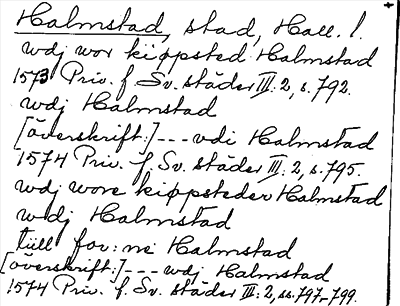 Halmstad, stad, Hall. l.
wdj wor kiøpsted Halmstad
1573 Priv. f. Sv. städer III:2, s. 792.
wdj Halmstad
[överskrift:] --- vdi Halmstad
1574 Priv. f. Sv. städer III:2, s. 795.
wdj wore kiøpsteder Halmstad
wdj Halmstad
tiill for:ne Halmstad
[överskrift:] --- wdj Halmstad
1574 Priv. f. Sv. städer III:2, ss. 797-799.